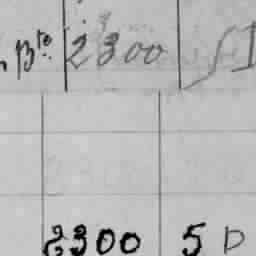 Bte 2300
2300 5 D